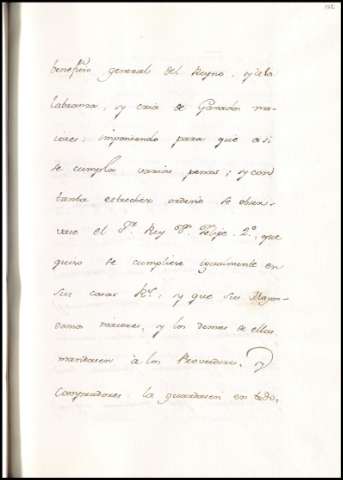 beneficio general del Reyno, y de la
Labranza, y cria de Ganados ma-
iores; imponiendo para que asi
se cumpla varias penas; y con
tanta estrechez ordenó se obser-
vase el Sr. Rey Dn. Felipe 2.º, que
quiso se cumpliese igualmente en
sus casas Rs., y que sus Mayor-
domos maiores, y los demas de ellas
mandasen á los Proveedores, y
Compradores la guardasen en todo,